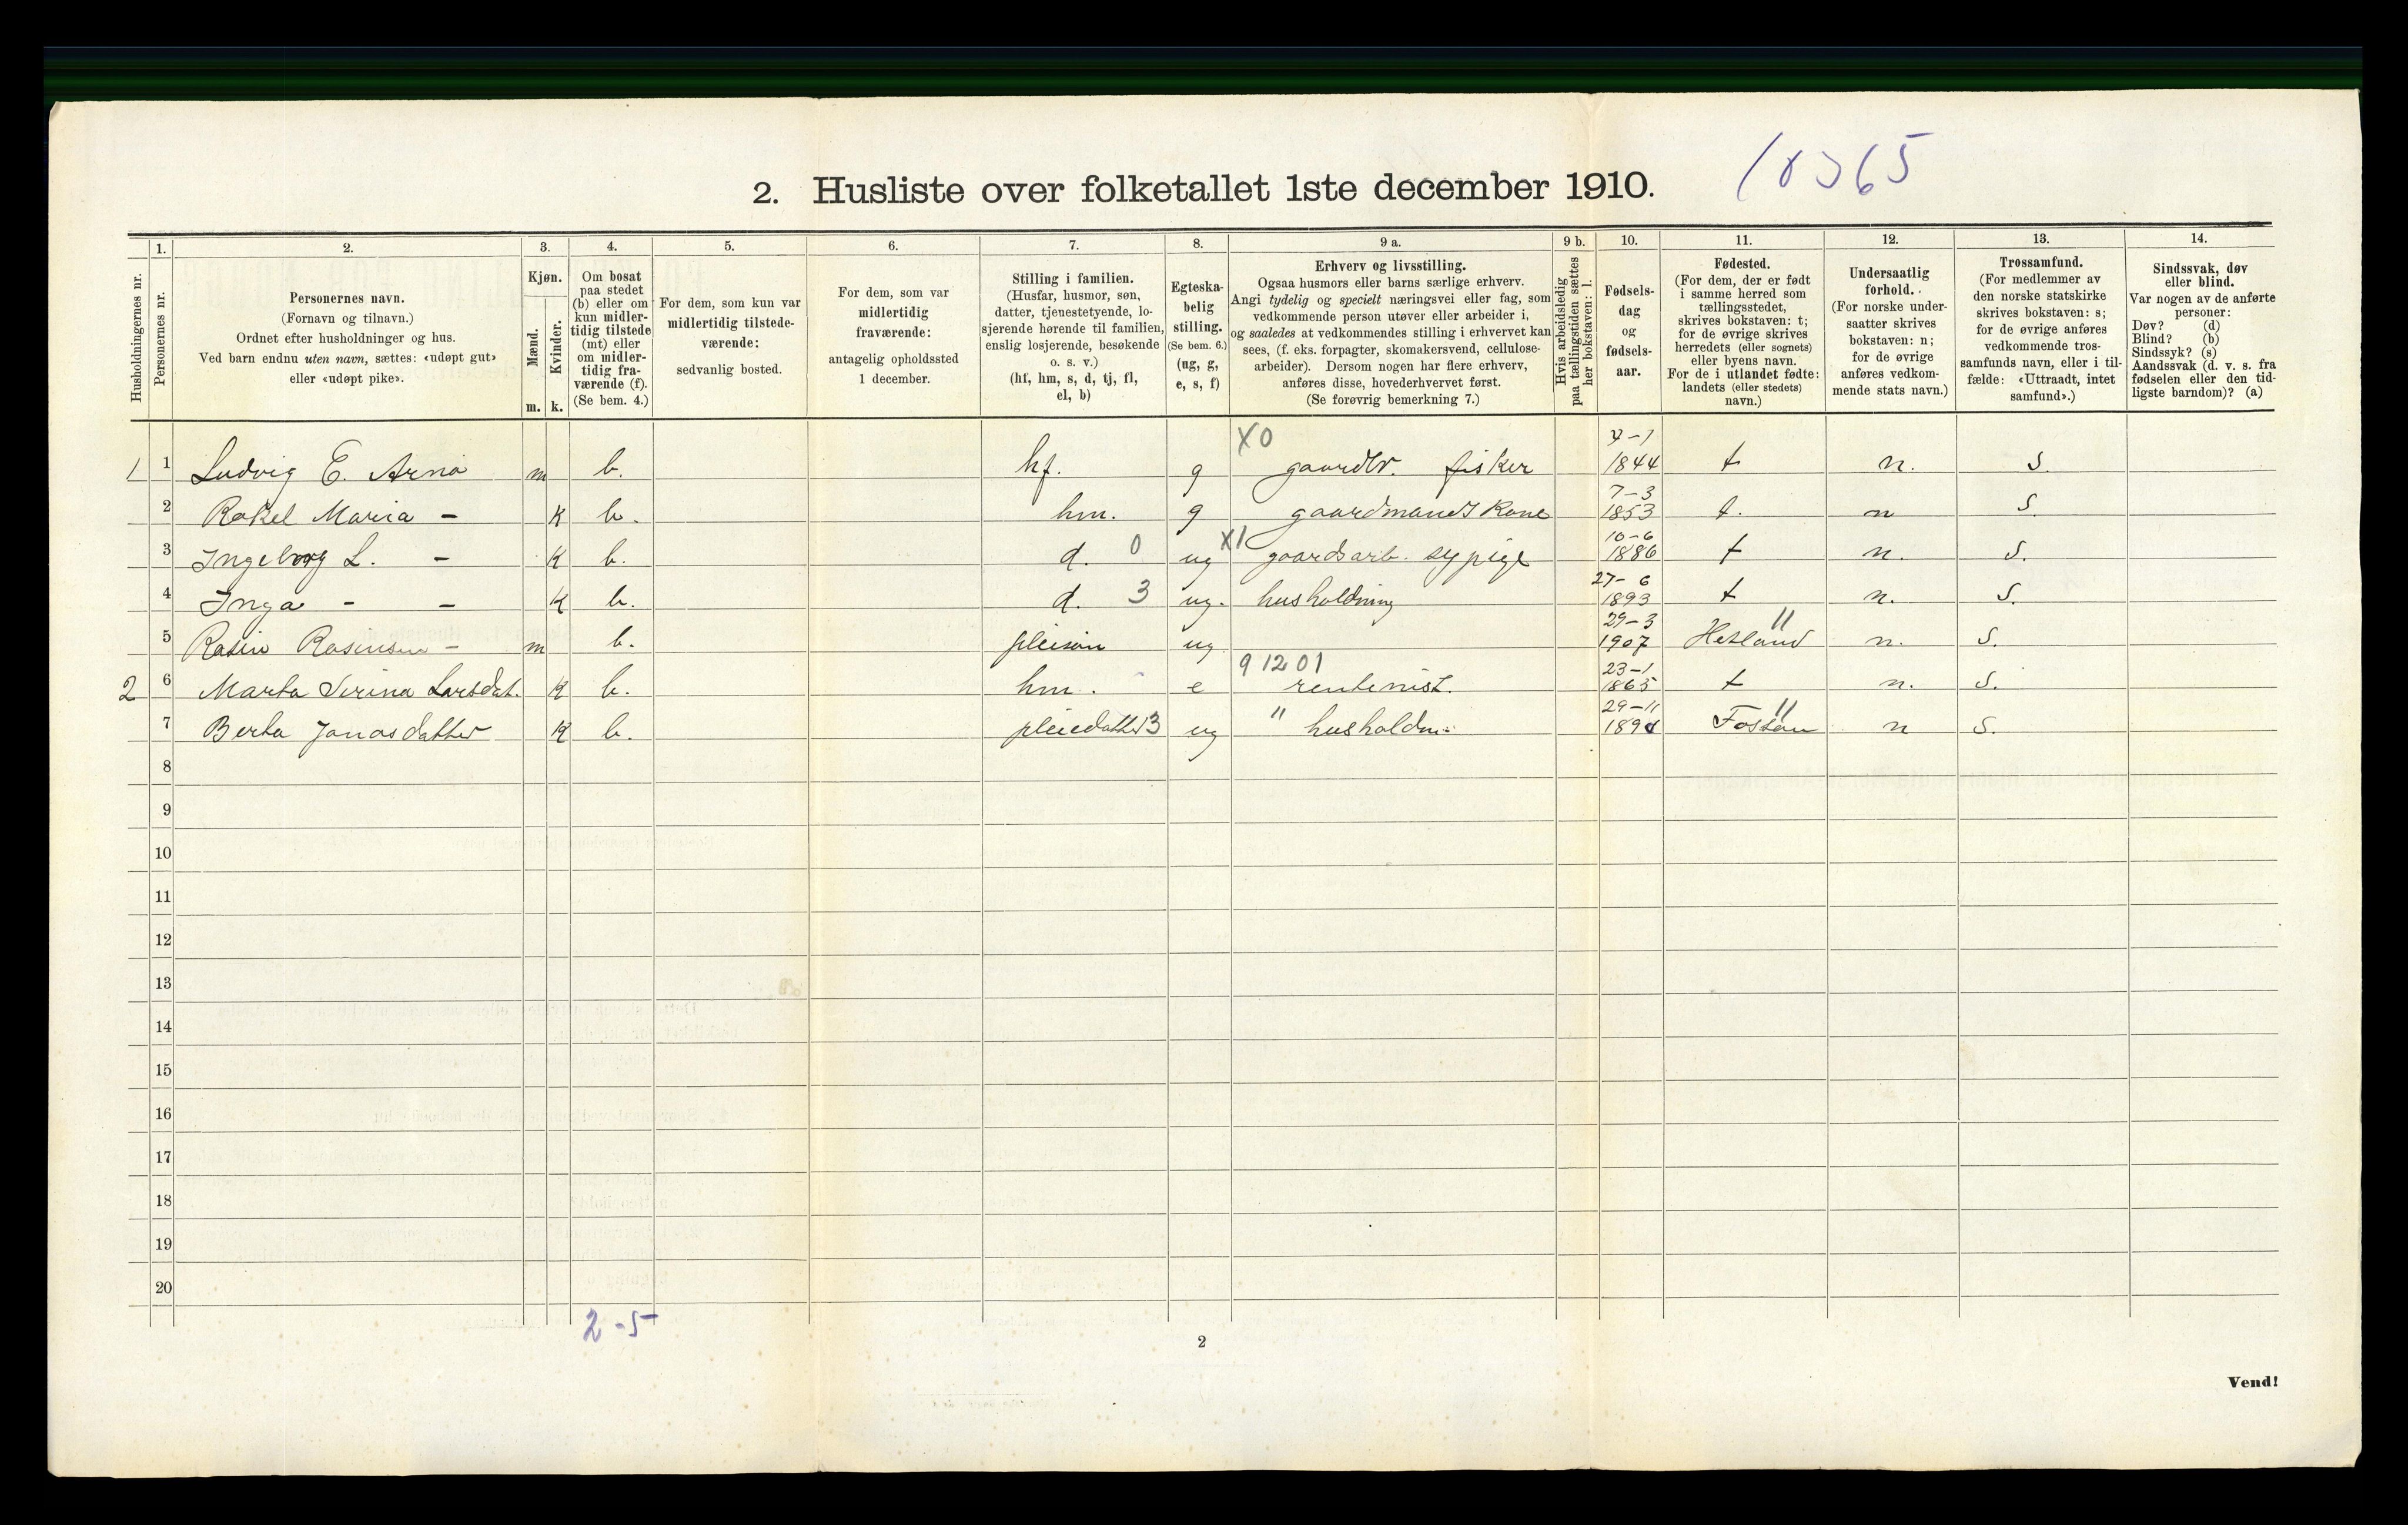 2. Husliste over folketallet 1ste december 1910.
Husholdningernes nr.
1.
Personernes nr.
2.
Personernes navn.
(Fornavn og tilnavn.)
Ordnet efter husholdninger og hus.
Ved barn endnu uten navn, sættes: «udøpt gut»
eller «udøpt pike».
3.
Kjøn.
Mænd.
Kvinder.
m. k.
4.
Om bosat
paa stedet
(b) eller om
kun midler-
tidig tilstede
(mt) eller
om midler-
tidig fra-
værende (f).
(Se bem. 4.)
5.
For dem, som kun var
midlertidig tilstede-
værende:
sedvanlig bosted.
6.
For dem, som var
midlertidig
fraværende:
antagelig opholdssted
1 december.
7.
Stilling i familien.
(Husfar, husmor, søn,
datter, tjenestetyende, lo-
sjerende hørende til familien,
enslig losjerende, besøkende
o. s. v.)
(hf, hm, s, d, tj, fl,
el, b)
8.
Egteska-
belig
stilling.
(Se bem. 6.)
(ug, g,
e, s, f)
9 a.
Erhverv og livsstilling.
Ogsaa husmors eller barns særlige erhverv.
Angi tydelig og specielt næringsvei eller fag, som
vedkommende person utøver eller arbeider i,
og saaledes at vedkommendes stilling i erhvervet kan
sees, (f. eks. forpagter, skomakersvend, cellulose-
arbeider). Dersom nogen har flere erhverv,
anføres disse, hovederhvervet først.
(Se forøvrig bemerkning 7.)
9 b.
Hvis arbeidsledig
paa tællingstiden sættes
her bokstaven: l.
10.
Fødsels-
dag
og
fødsels-
aar.
11.
Fødested.
(For dem, der er født
i samme herred som
tællingsstedet,
skrives bokstaven: t;
for de øvrige skrives
herredets (eller sognets)
eller byens navn.
For de i utlandet fødte:
landets (eller stedets)
navn.)
12.
Undersaatlig
forhold.
(For norske under-
saatter skrives
bokstaven: n;
for de øvrige
anføres vedkom-
mende stats navn.)
13.
Trossamfund.
(For medlemmer av
den norske statskirke
skrives bokstaven: s;
for de øvrige anføres
vedkommende tros-
samfunds navn, eller i til-
fælde: «Uttraadt, intet
samfund».)
14.
Sindssvak, døv
eller blind.
Var nogen av de anførte
personer:
Døv? (d)
Blind? (b)
Sindssyk? (s)
Aandssvak (d. v. s. fra
fødselen eller den tid-
ligste barndom)? (a)
X0
1 1 Ludvig E. Arnø m b. hf. g gaardbr. fisker 4-1 1844 t n. s.
2 Rakel Maria - k b. hm. g gaardmands kone 7-3 1853 t. n s.
3 Ingeborg L. - k b. d. 0 ug X1 gaardsarb. sypige 10-6 1886 t n. s.
4 Inga - - k b. d. 3 ug. husholdning 27-6 1893 t n. s.
5 Rasin Rasinsen - m b. pleiesøn ug 29-3 1907 Hetland " n. s.
91201
2 6 Marta Serina Larsdat. k b. hm. e rentenist. 23-1 1865 t n. s.
7 Berta Jonasdatter k b. pleiedatter 3 ug " husholdn. 29-11 Fossan " n s.
8
9
10
11
12
13
14
15
16
17
18
19
20
2-5
2
Vend!